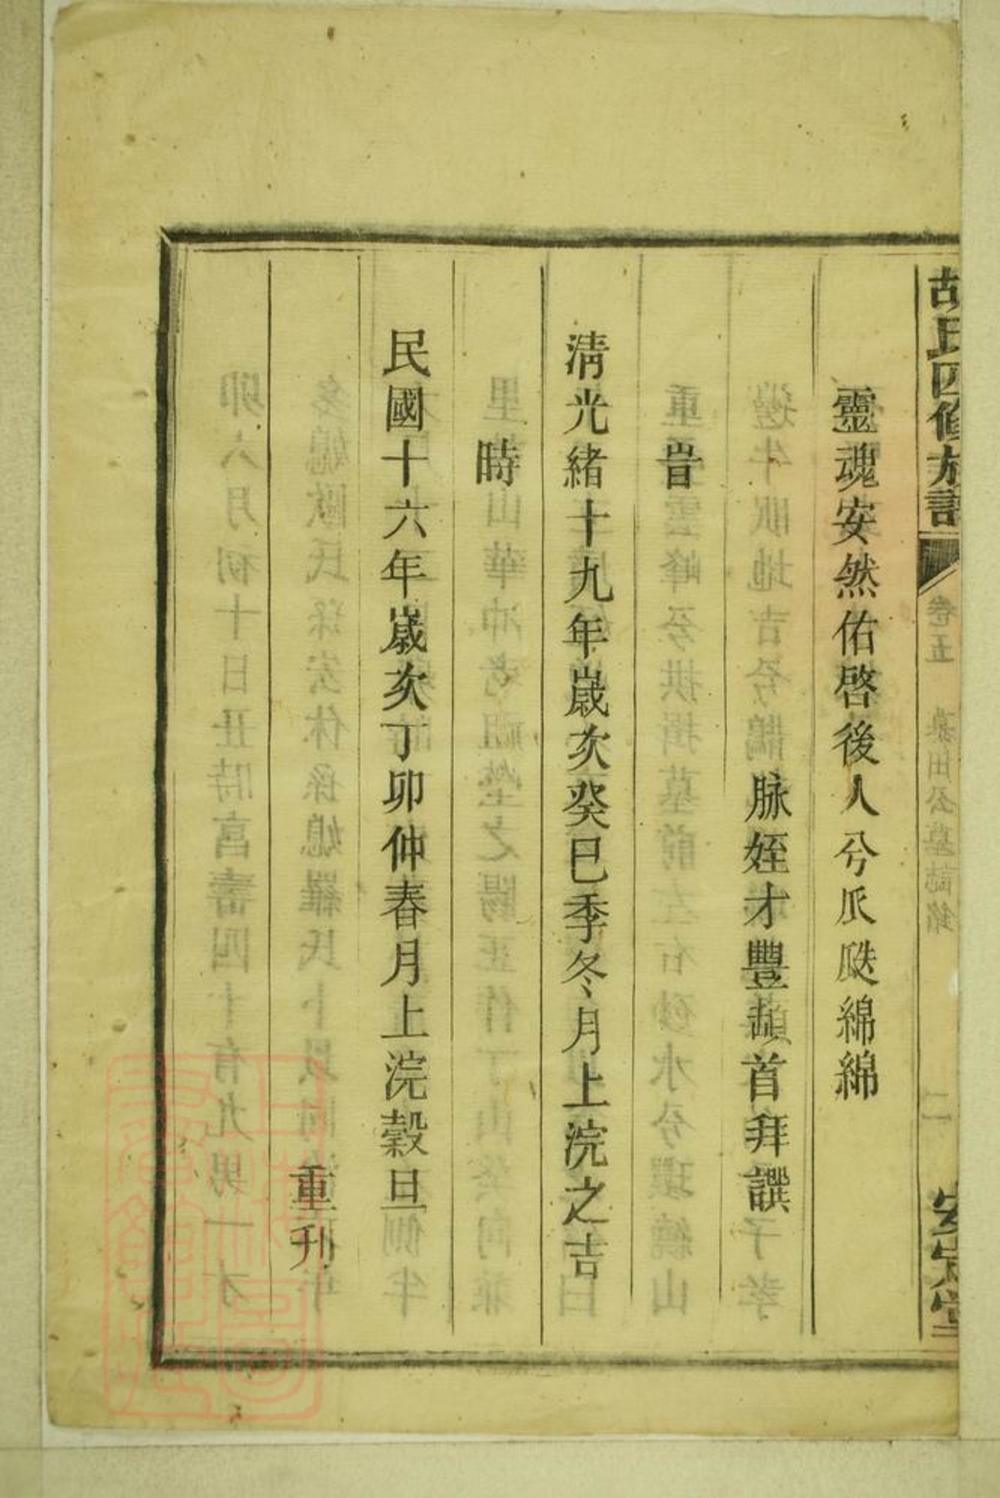 胡氏四修族譜
卷五
二
安定堂
靈魂安然佑啓後人兮瓜瓞綿綿
脉姪才豐頓首拜譔
旹
清光緒十九年歲次癸巳季冬月上浣之吉
時
民國十六年歲次丁卯仲春月上浣穀旦
重刋